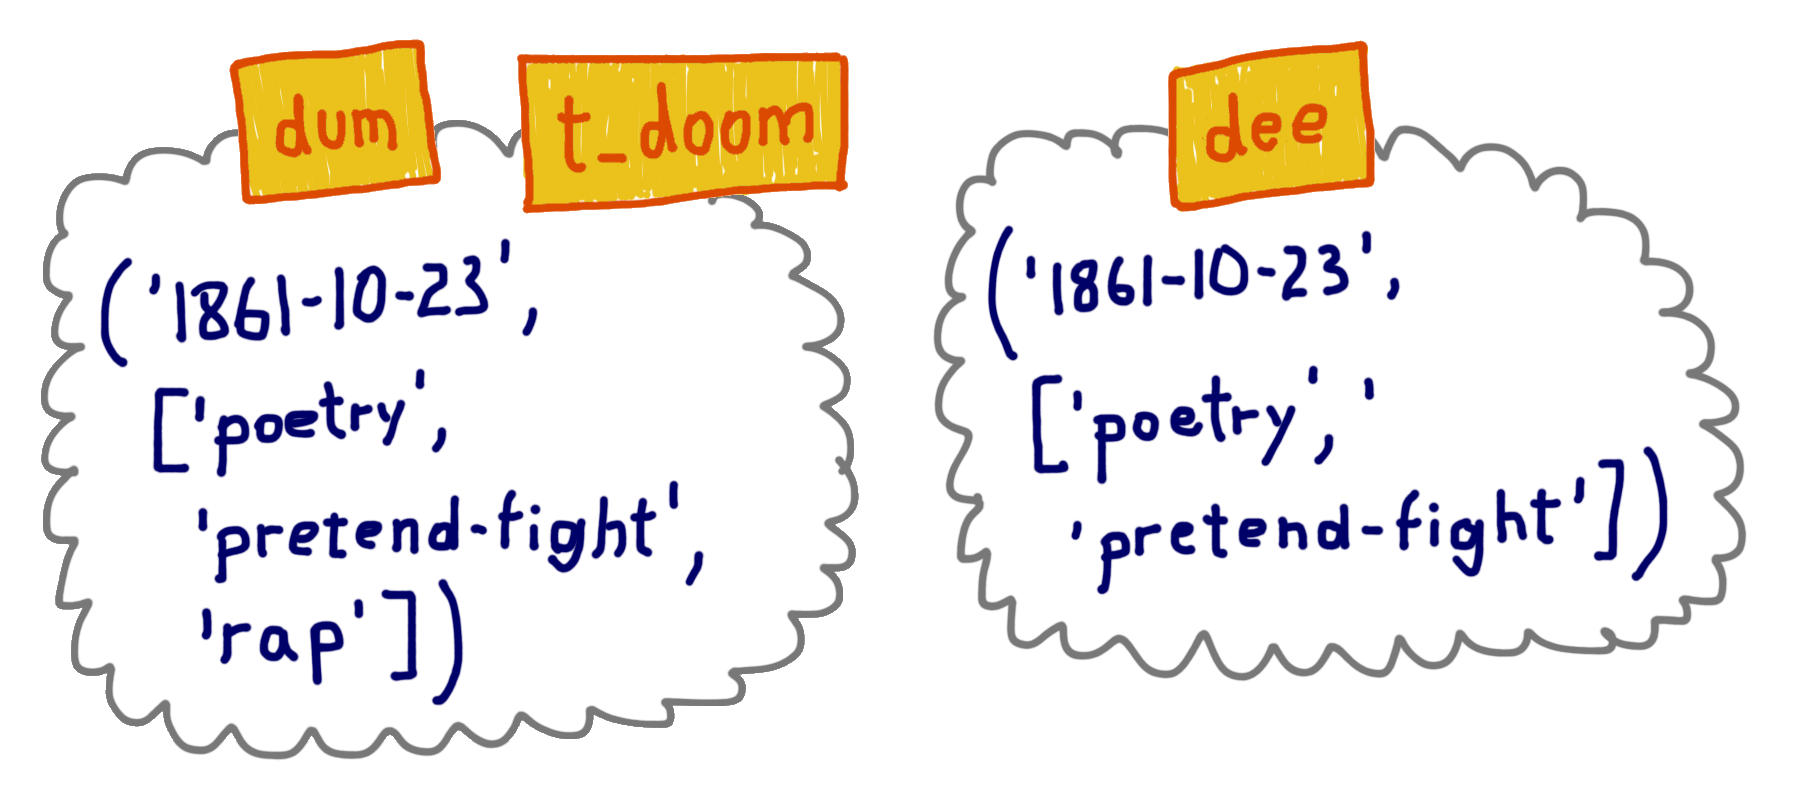 dum
t_doom
('1861-10-23',
['poetry',
'pretend-fight',
'rap'])
dee
('1861-10-23',
['poetry', '
'pretend-fight'])